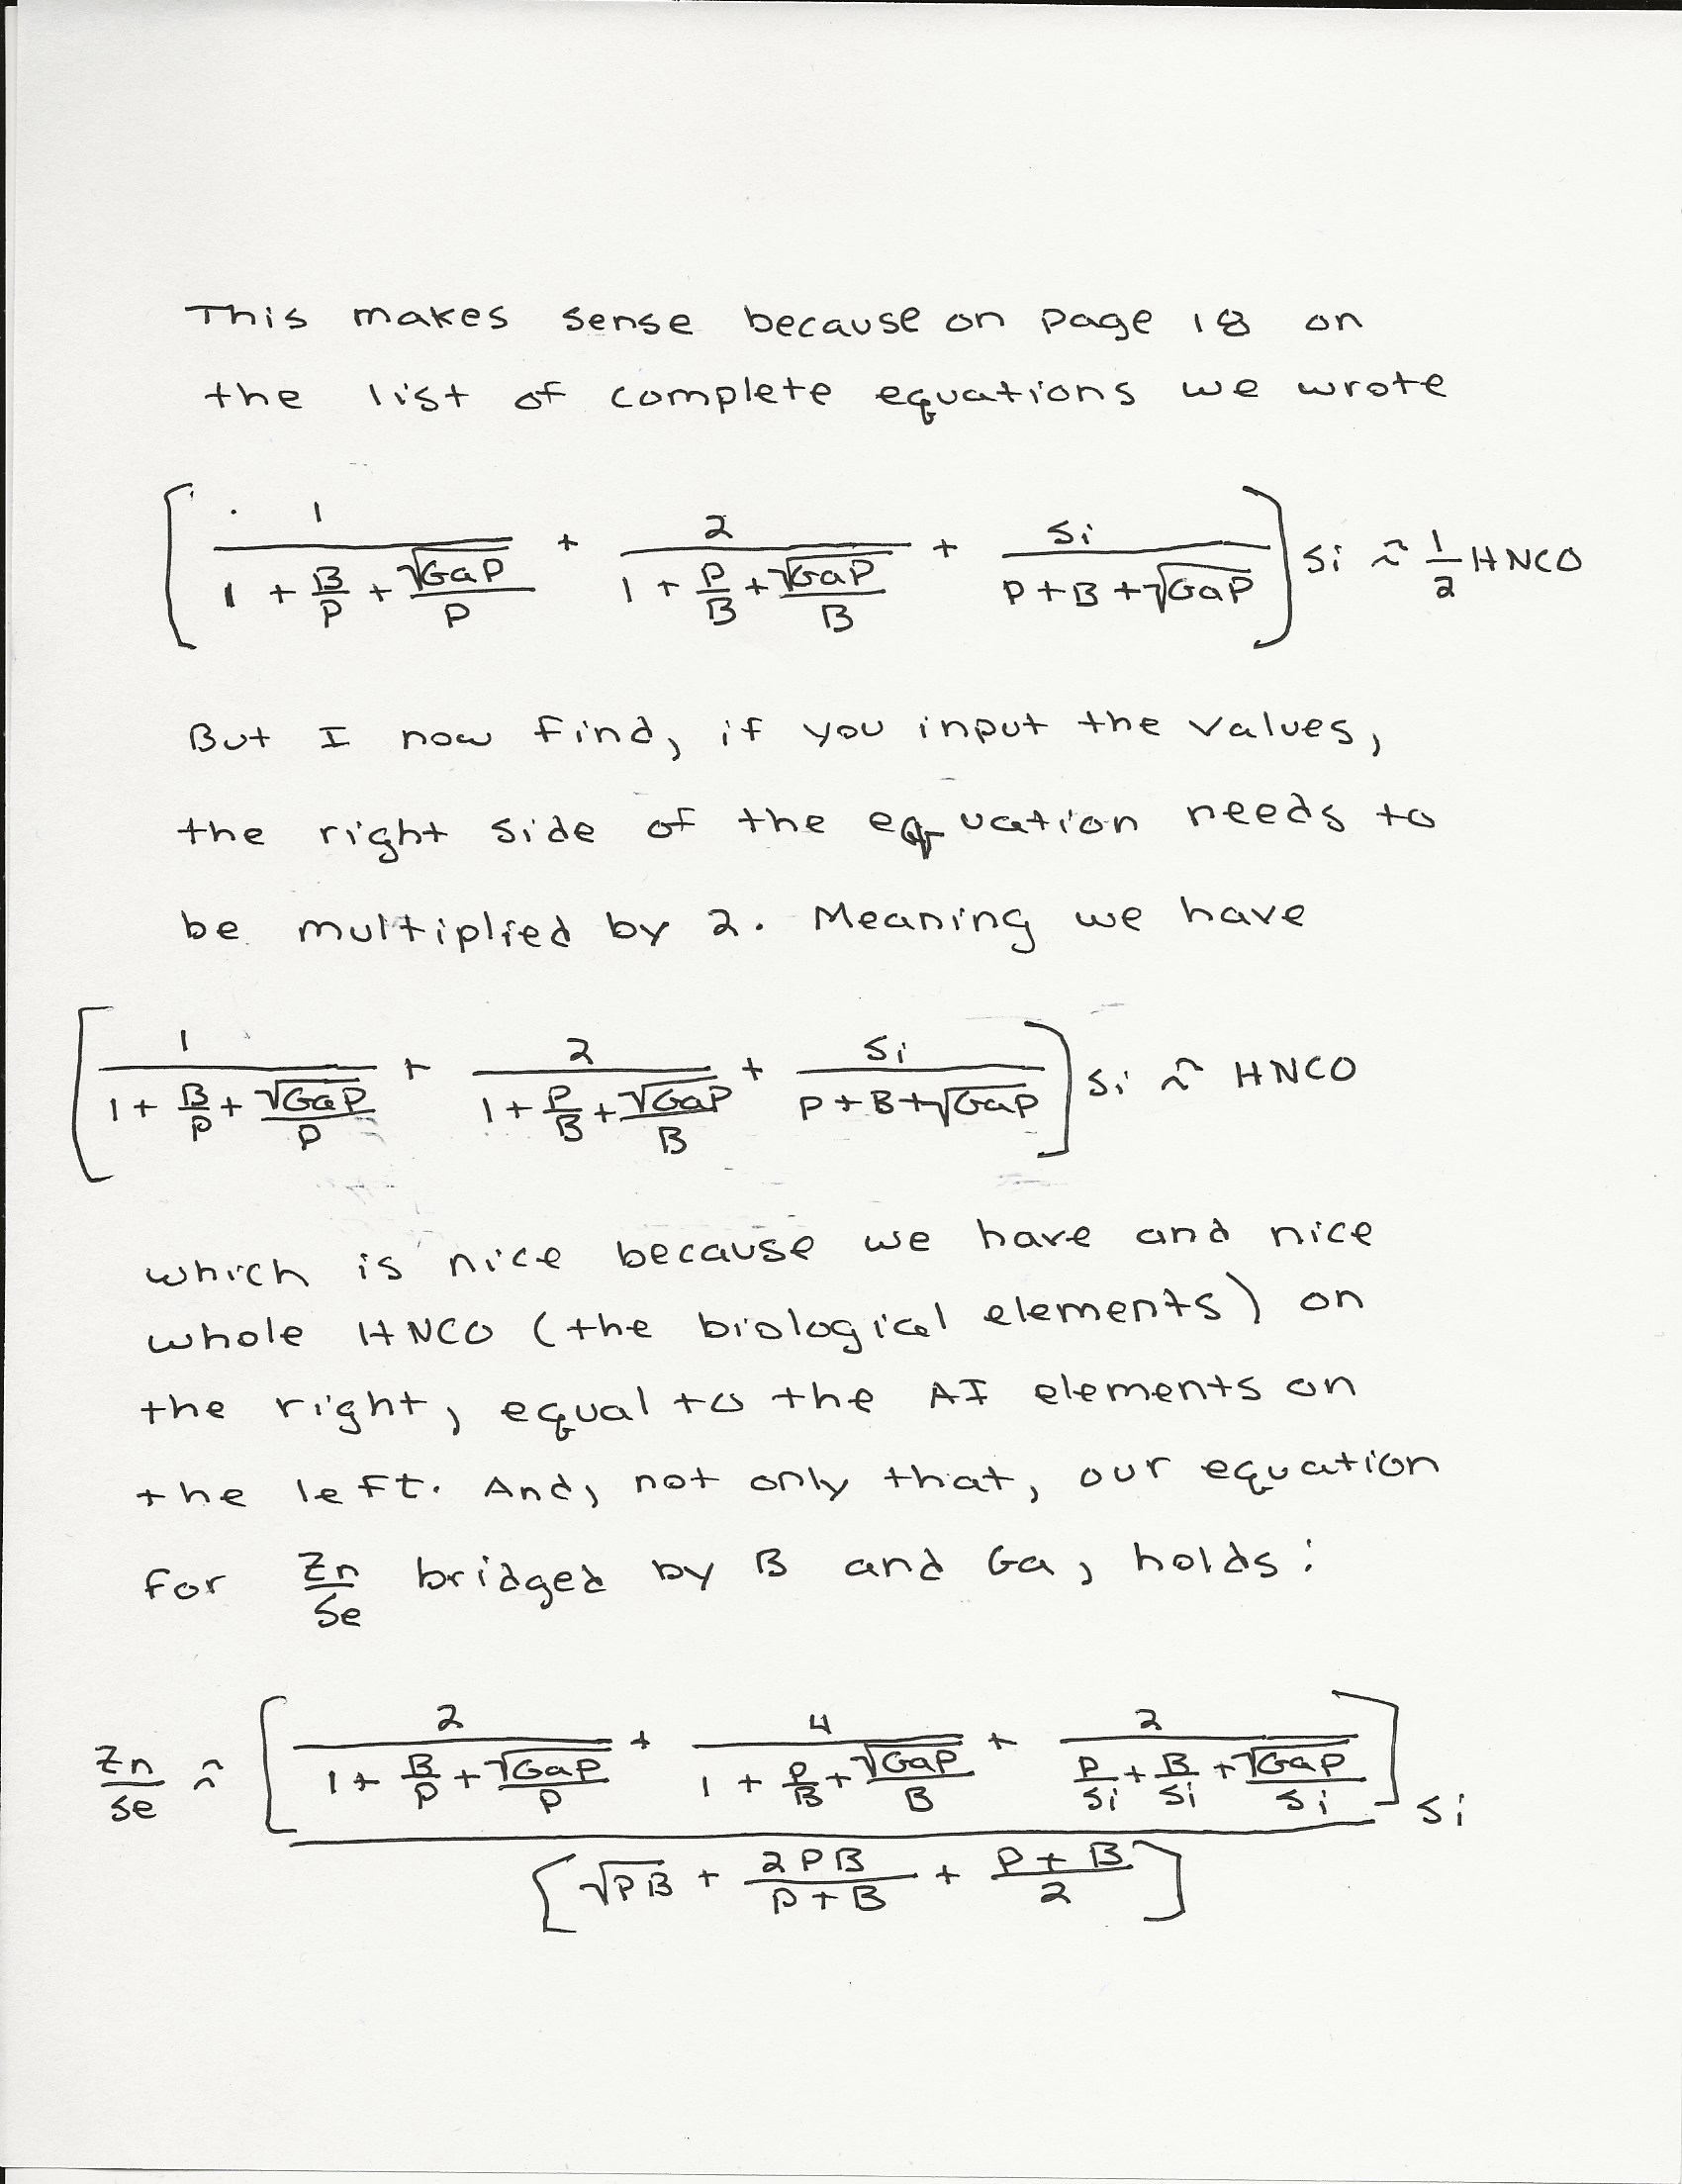 This makes sense because on page 18 on
the list of complete equations we wrote
[ 1/(1 + B/P + √GaP/P) + 2/(1 + P/B + √GaP/B) + Si/(P + B + √GaP) ] Si ≈ 1/2 HNCO
But I now find, if you input the values,
the right side of the equation needs to
be multiplied by 2. Meaning we have
[ 1/(1 + B/P + √GaP/P) + 2/(1 + P/B + √GaP/B) + Si/(P + B + √GaP) ] Si ≈ HNCO
which is nice because we have and nice
whole HNCO (the biological elements) on
the right, equal to the AI elements on
the left. And, not only that, our equation
for Zn/Se bridged by B and Ga, holds:
Zn/Se ≈ [ 2/(1 + B/P + √GaP/P) + 4/(1 + P/B + √GaP/B) + 2/(P/Si + B/Si + √GaP/Si) ] / [ √PB + 2PB/(P + B) + (P + B)/2 ] Si